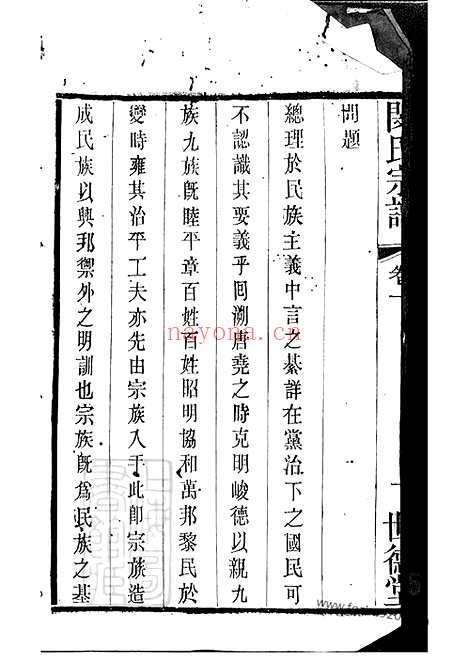 閔氏宗譜 卷一 世德堂
問題
總理於民族主義中言之綦詳在黨治下之國民可
不認識其要義乎囘溯唐堯之時克明峻德以親九
族九族旣睦平章百姓百姓昭明協和萬邦黎民於
變時雍其治平工夫亦先由宗族入手此卽宗族造
成民族以興邦禦外之明訓也宗族旣爲民族之基
nayona.cn